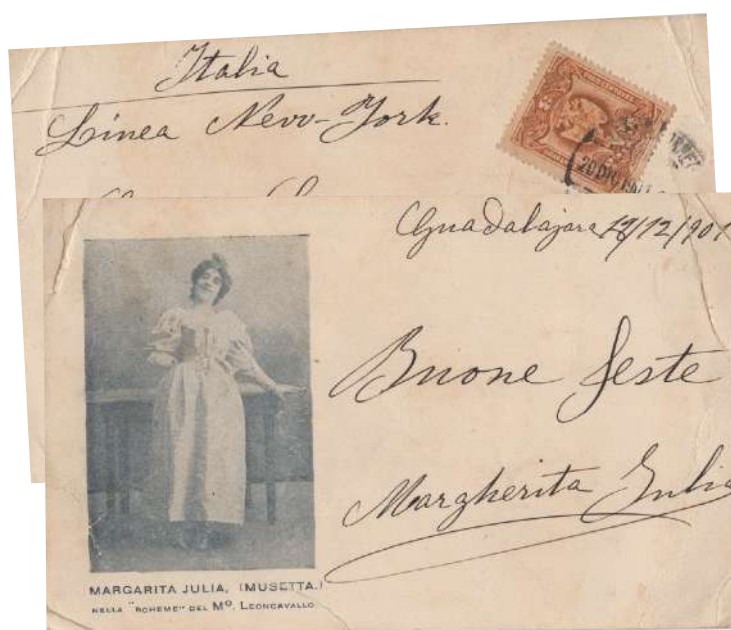 Italia
Linea New-York.
20 DIC 190
Guadalajara 18/12/901
Buone feste
Margherita Julia
MARGARITA JULIA, (MUSETTA.)
NELLA "BOHEME" DEL Mº. LEONCAVALLO